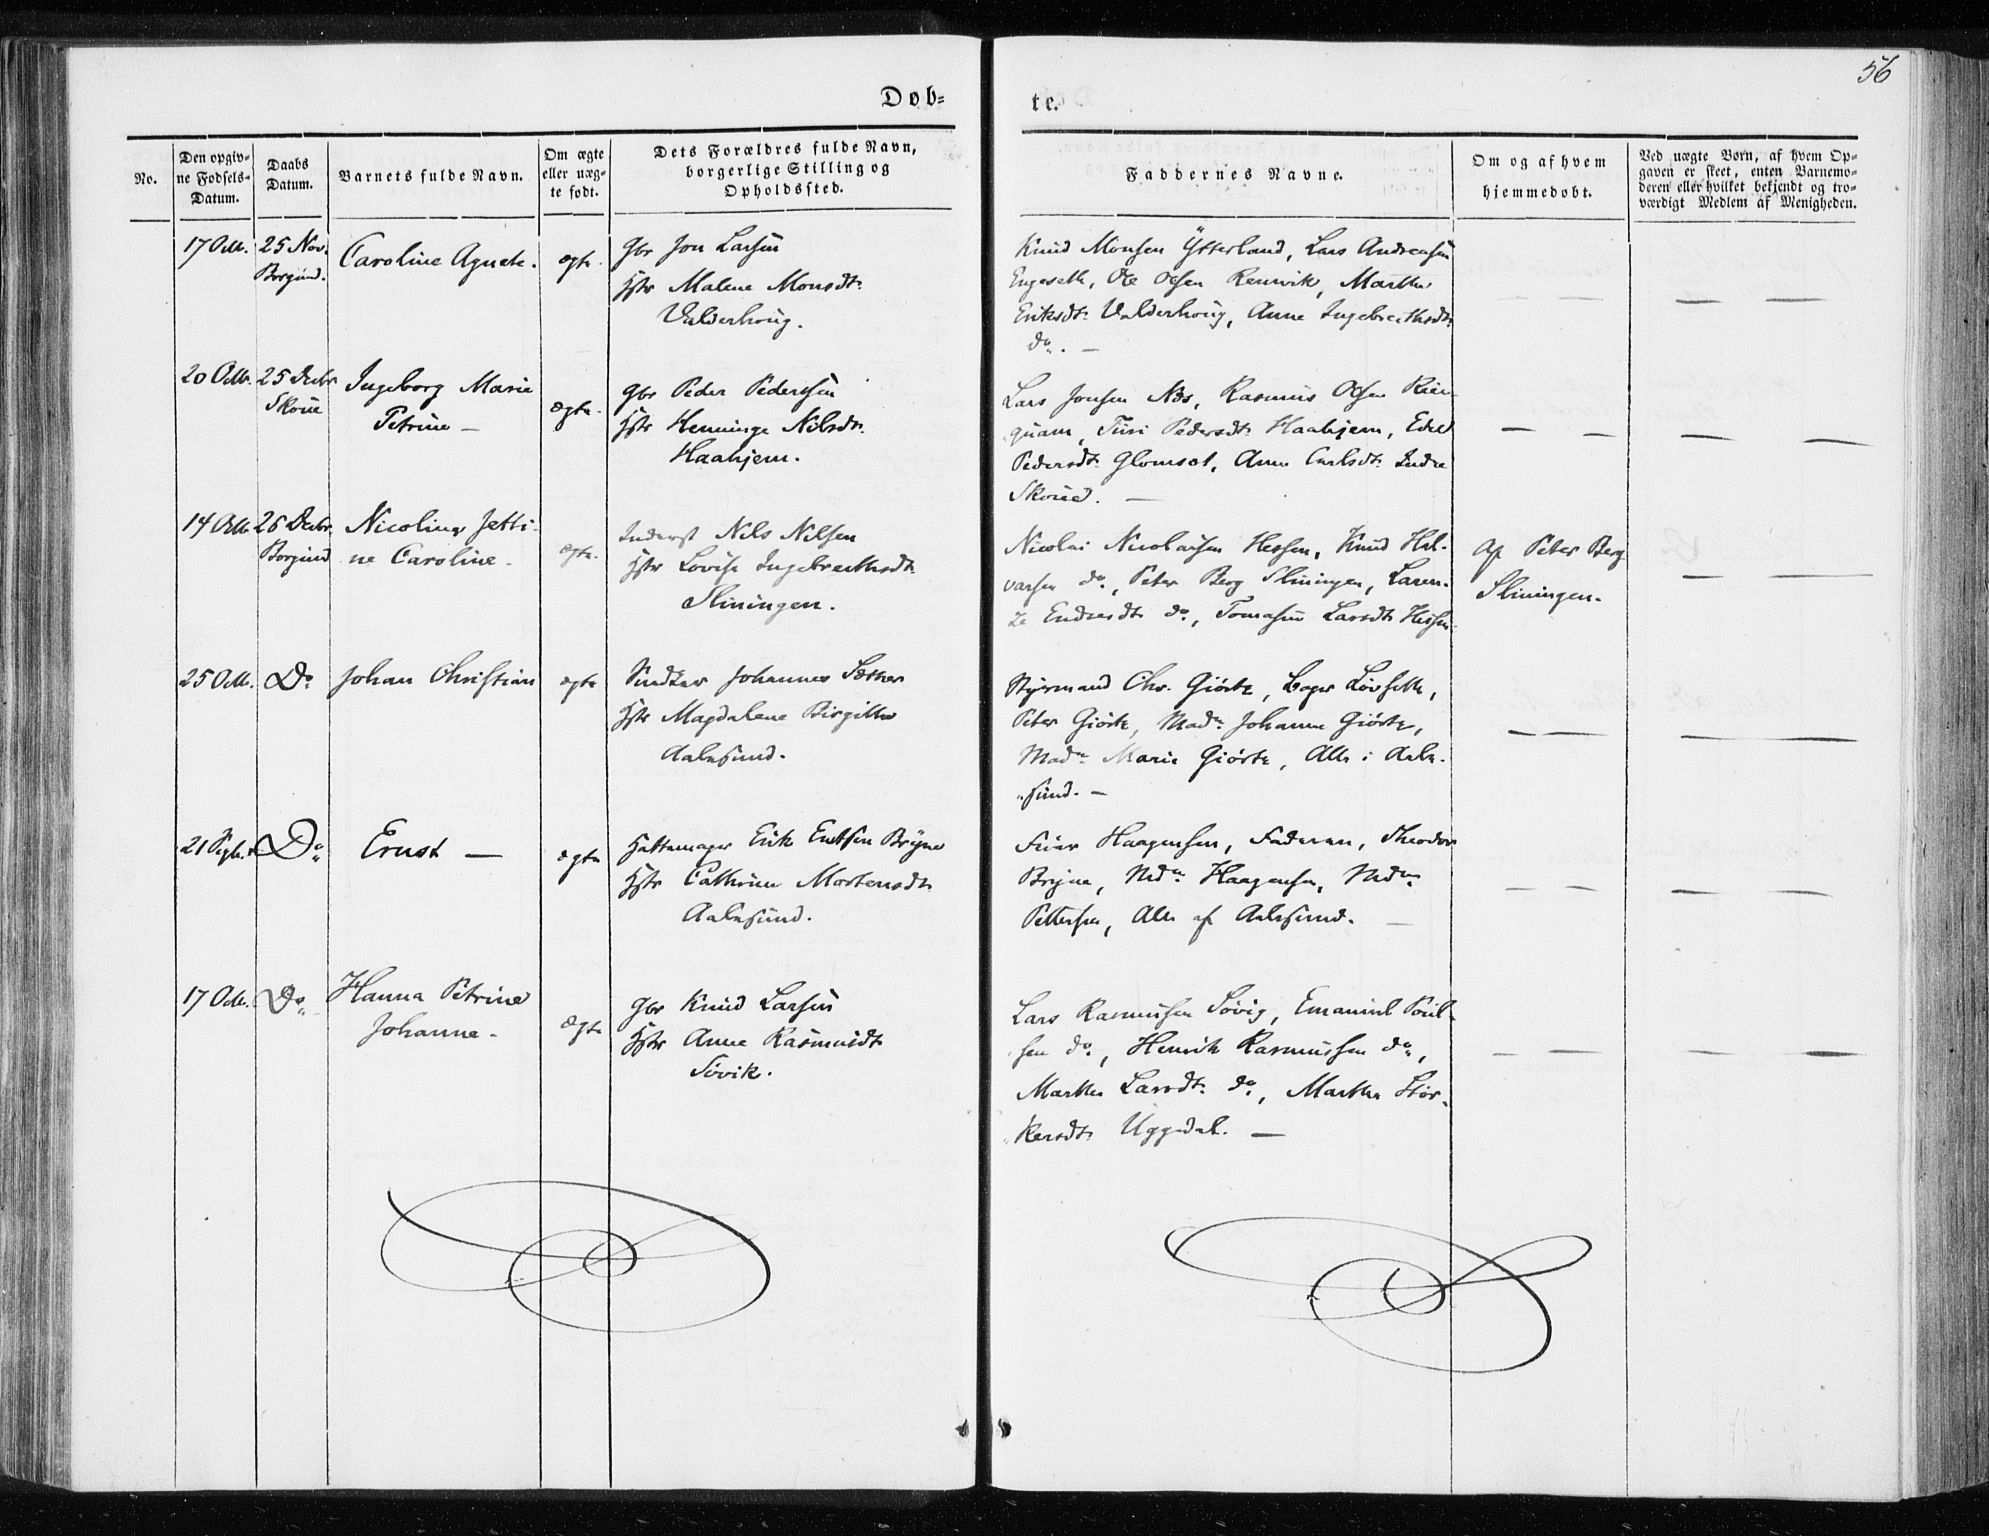 56
Døb=
te.
No.
Den opgiv=
ne Fødsels=
Datum.
Daabs
Datum.
Barnets fulde Navn.
Om ægte
eller uæg=
te født.
Dets Forældres fulde Navn,
borgerlige Stilling og
Opholdssted.
Faddernes Navne.
Om og af hvem
hjemmedøbt.
Ved uægte Børn, af hvem Op=
gaven er skeet, enten Barnemo=
deren eller hvilket bekjendt og tro=
værdigt Medlem af Menigheden.
17 Octb.
25 Nov.
Borgund.
Caroline Agnete.
ægte.
Gbr Jon Larsen
Hstr Malene Monsdtr
Valderhoug.
Knud Monsen Ytterland, Lars Andreasen
Engeseth, Ole Olsen Remvik, Marthe
Eriksdtr Valderhoug, Anne Ingebrethsdtr
do. —
20 Octb.
25 Decbr
Skoue
Ingeborg Marie
Petrine —
ægte.
Gbr Peder Pedersen
Hstr Henninge Nilsdtr
Haahjem.
Lars Jonsen Næs, Rasmus Olsen
quam, Turi Pedersdtr Haahjem, Edel
Pedersdtr Glomset, Anne Carlsdtr Indre
Skoue. —
14 Octb.
26 Decbr.
Borgund
Nicoline Jetti-
ne Caroline.
ægte.
Inderst Nils Nilsen
Hstr Lovise Ingebrethsdtr
Sliningen.
Nicolai Nicolaisen Hessen, Knud Hal-
varsen do, Peter Berg Sliningen, Laren-
ze Endresdtr do, Tomasine Larsdtr Hessen.
Af Peter Berg
Sliningen.
25 Octb.
Do
Johan Christian
ægte
Snedker Johannes Sæther
Hstr Magdalene Birgitte
Aalesund.
Styrmand Chr. Giørtz, Løvseth,
Peter Giørtz, Madm Johanne Giørtz,
Madm Marie Giørtz, Alle i Aale-
sund. —
21 Septbr
Do
Ernst —
ægte
Hattemager Erik Bryne
Hstr Cathrine Mortensdtr
Aalesund.
Haagensen, Faderen, Theodor
Bryne, Mdm Haagensen, Mdm
Pettersen, Alle af Aalesund. —
17 Octb.
Do
Hanna Petrine
Johanne.
ægte
Gbr Knud Larsen
Hstr Anne Rasmusdtr
Søvik.
Lars Rasmussen Søvig, Emanuel Poul-
sen do, Henrik Rasmussen do,
Marthe Larsdtr do, Marthe Stor-
kersdtr Uggedal. —